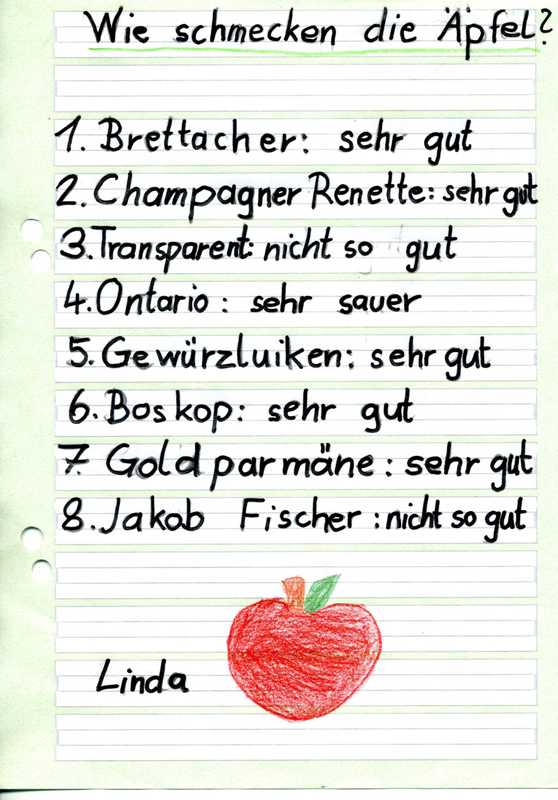 Wie schmecken die Äpfel?
1. Brettacher: sehr gut
2. Champagner Renette: sehr gut
3. Transparent: nicht so gut
4. Ontario: sehr sauer
5. Gewürzluiken: sehr gut
6. Boskop: sehr gut
7. Goldparmäne: sehr gut
8. Jakob Fischer: nicht so gut
Linda